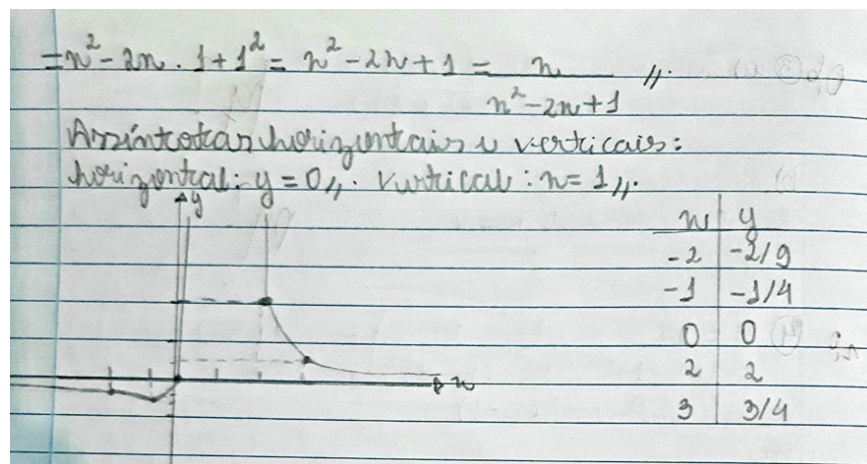 =x² - 2x . 1 + 1² = x² - 2x + 1 = x / x² - 2x + 1 //.
Assíntotas horizontais e verticais:
horizontal: y = 0 //. Vertical: x = 1 //.
y
x
x y
-2 -2/9
-1 -1/4
0 0
2 2
3 3/4